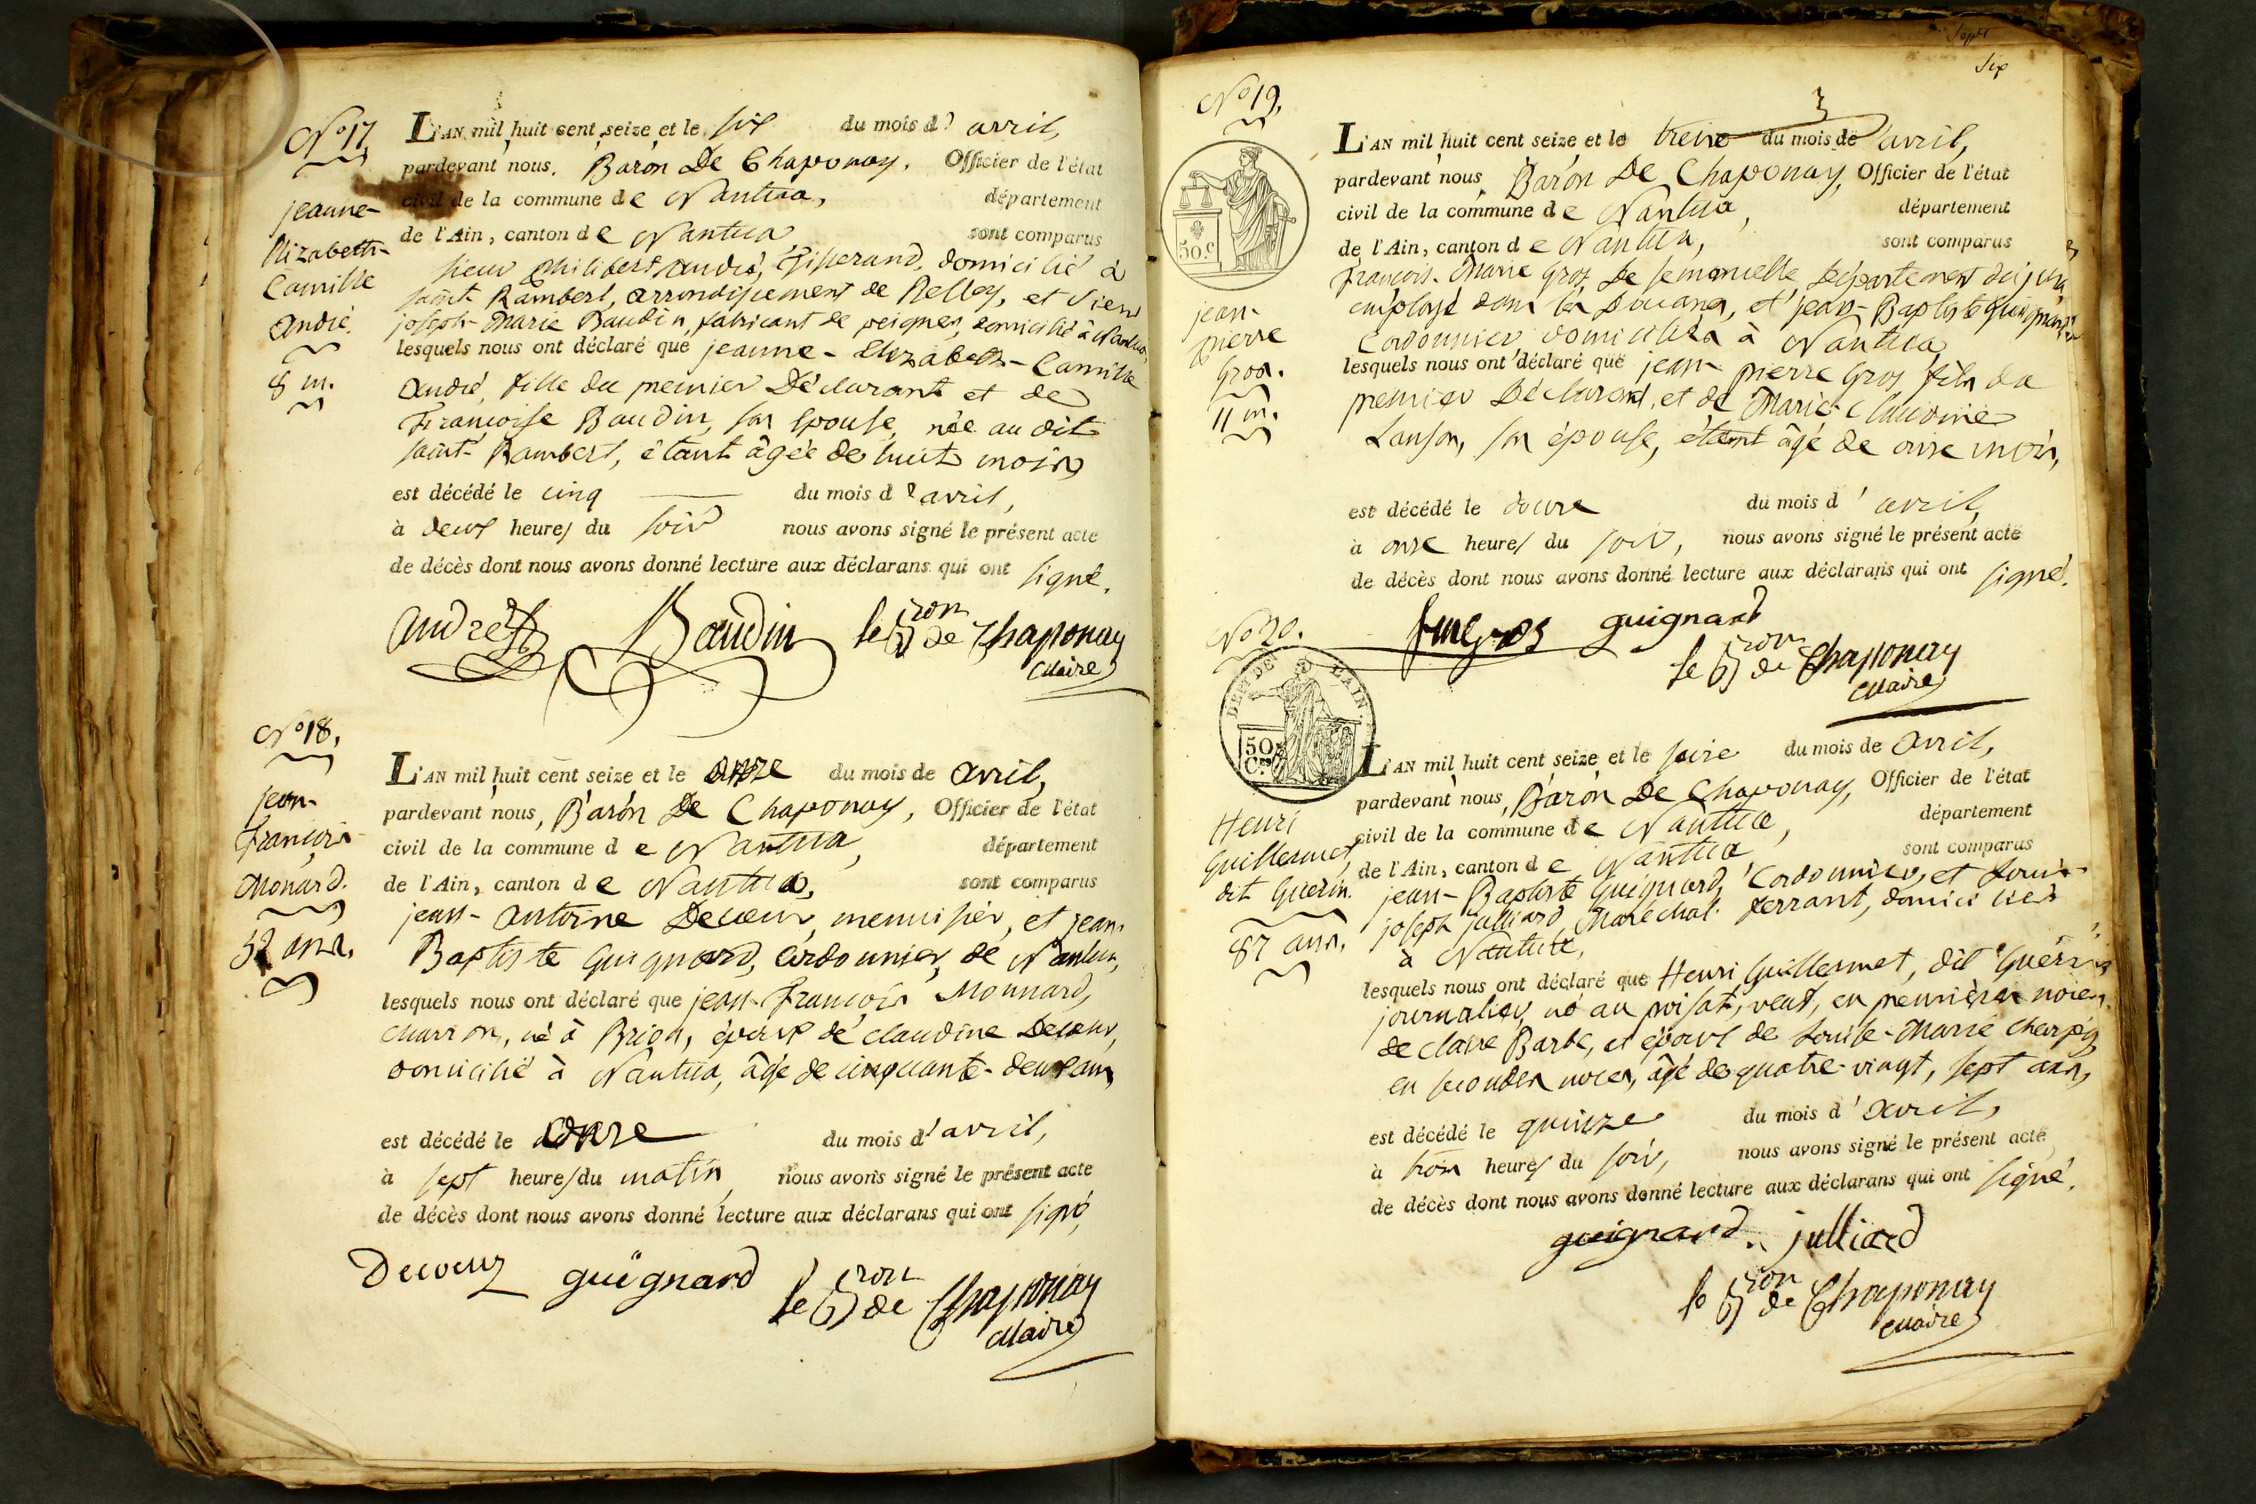 N° 17
jeanne-
Elizabeth-
Camille
andré.
8 m.
L'AN mil huit cent seize et le six du mois d' avril,
pardevant nous, Baron De Chaponay, Officier de l'état
civil de la commune de Nantua, département
de l'Ain, canton de Nantua sont comparus
sieur philibert andré, Tisserand, domicilié à
saint Rambert, arrondissement de Belley, et sieur
joseph-Marie Baudin, fabricant de peignes, domicilié à Nantua,
lesquels nous ont déclaré que jeanne-Elizabeth-Camille
andré, fille du premier Déclarant et de
Françoise Baudin, son épouse, née au dit
saint-Rambert, étant âgée de huit mois,
est décédé le cinq du mois d'avril,
à deux heures du soir nous avons signé le présent acte
de décès dont nous avons donné lecture aux déclarans qui ont signé.
andré Baudin le Bron de Chaponay
Maire
N° 18.
jean-
François
Monard.
52 ans.
L'AN mil huit cent seize et le onze du mois de avril,
pardevant nous, Baron De Chaponay, Officier de l'état
civil de la commune de Nantua, département
de l'Ain, canton de Nantua, sont comparus
jean-antoine Decoeur, menuisier, et jean-
Baptiste Guignard, Cordonnier, de Nantua,
lesquels nous ont déclaré que jean-François Monnard,
charron, né à Brion, époux de claudine Decoeur,
domicilié à Nantua, âgé de cinquante-deux ans,
est décédé le onze du mois d'avril,
à sept heures du matin, nous avons signé le présent acte
de décès dont nous avons donné lecture aux déclarans qui ont signé,
Decoeur guignard le Bron de Chaponay
Maire
Six
N° 19.
50 c.
jean-
pierre
Gros.
11 m.
L'AN mil huit cent seize et le treize du mois de avril,
pardevant nous, Baron De Chaponay, Officier de l'état
civil de la commune de Nantua, département
de l'Ain, canton de Nantua, sont comparus
François-Marie Gros, De département du jura
employé dans les Douanes, et jean-Baptiste Guignard,
Cordonnier domiciliés à Nantua
lesquels nous ont déclaré que jean-pierre Gros fils du
premier Déclarant, et de Marie-Claudine
Lanson, son épouse, étant âgé de onze mois,
est décédé le douze du mois d'avril,
à onze heures du soir, nous avons signé le présent acte
de décès dont nous avons donné lecture aux déclarans qui ont signé.
gros guignard
le Bron de Chaponay
Maire
N° 20.
DEPT. DE L'AIN.
50 Cmes
Henri
Guillermet,
dit Guérin.
87 ans.
L'AN mil huit cent seize et le seize du mois de avril,
pardevant nous, Baron De Chaponay, Officier de l'état
civil de la commune de Nantua, département
de l'Ain, canton de Nantua sont comparus
jean-Baptiste Guignard, Cordonnier, et Louis-
joseph julliard, Maréchal-ferrant, domiciliés
à Nantua,
lesquels nous ont déclaré que Henri Guillermet, dit Guérin
journalier, né au poisat, veuf, en premières noces,
de claire Barbe, et époux de Louise-Marie
en secondes noces, âgé de quatre-vingt, sept ans,
est décédé le quinze du mois d'avril,
à trois heures du soir, nous avons signé le présent acte
de décès dont nous avons donné lecture aux déclarans qui ont signé.
guignard. julliard
le Bron de Chaponay
Maire